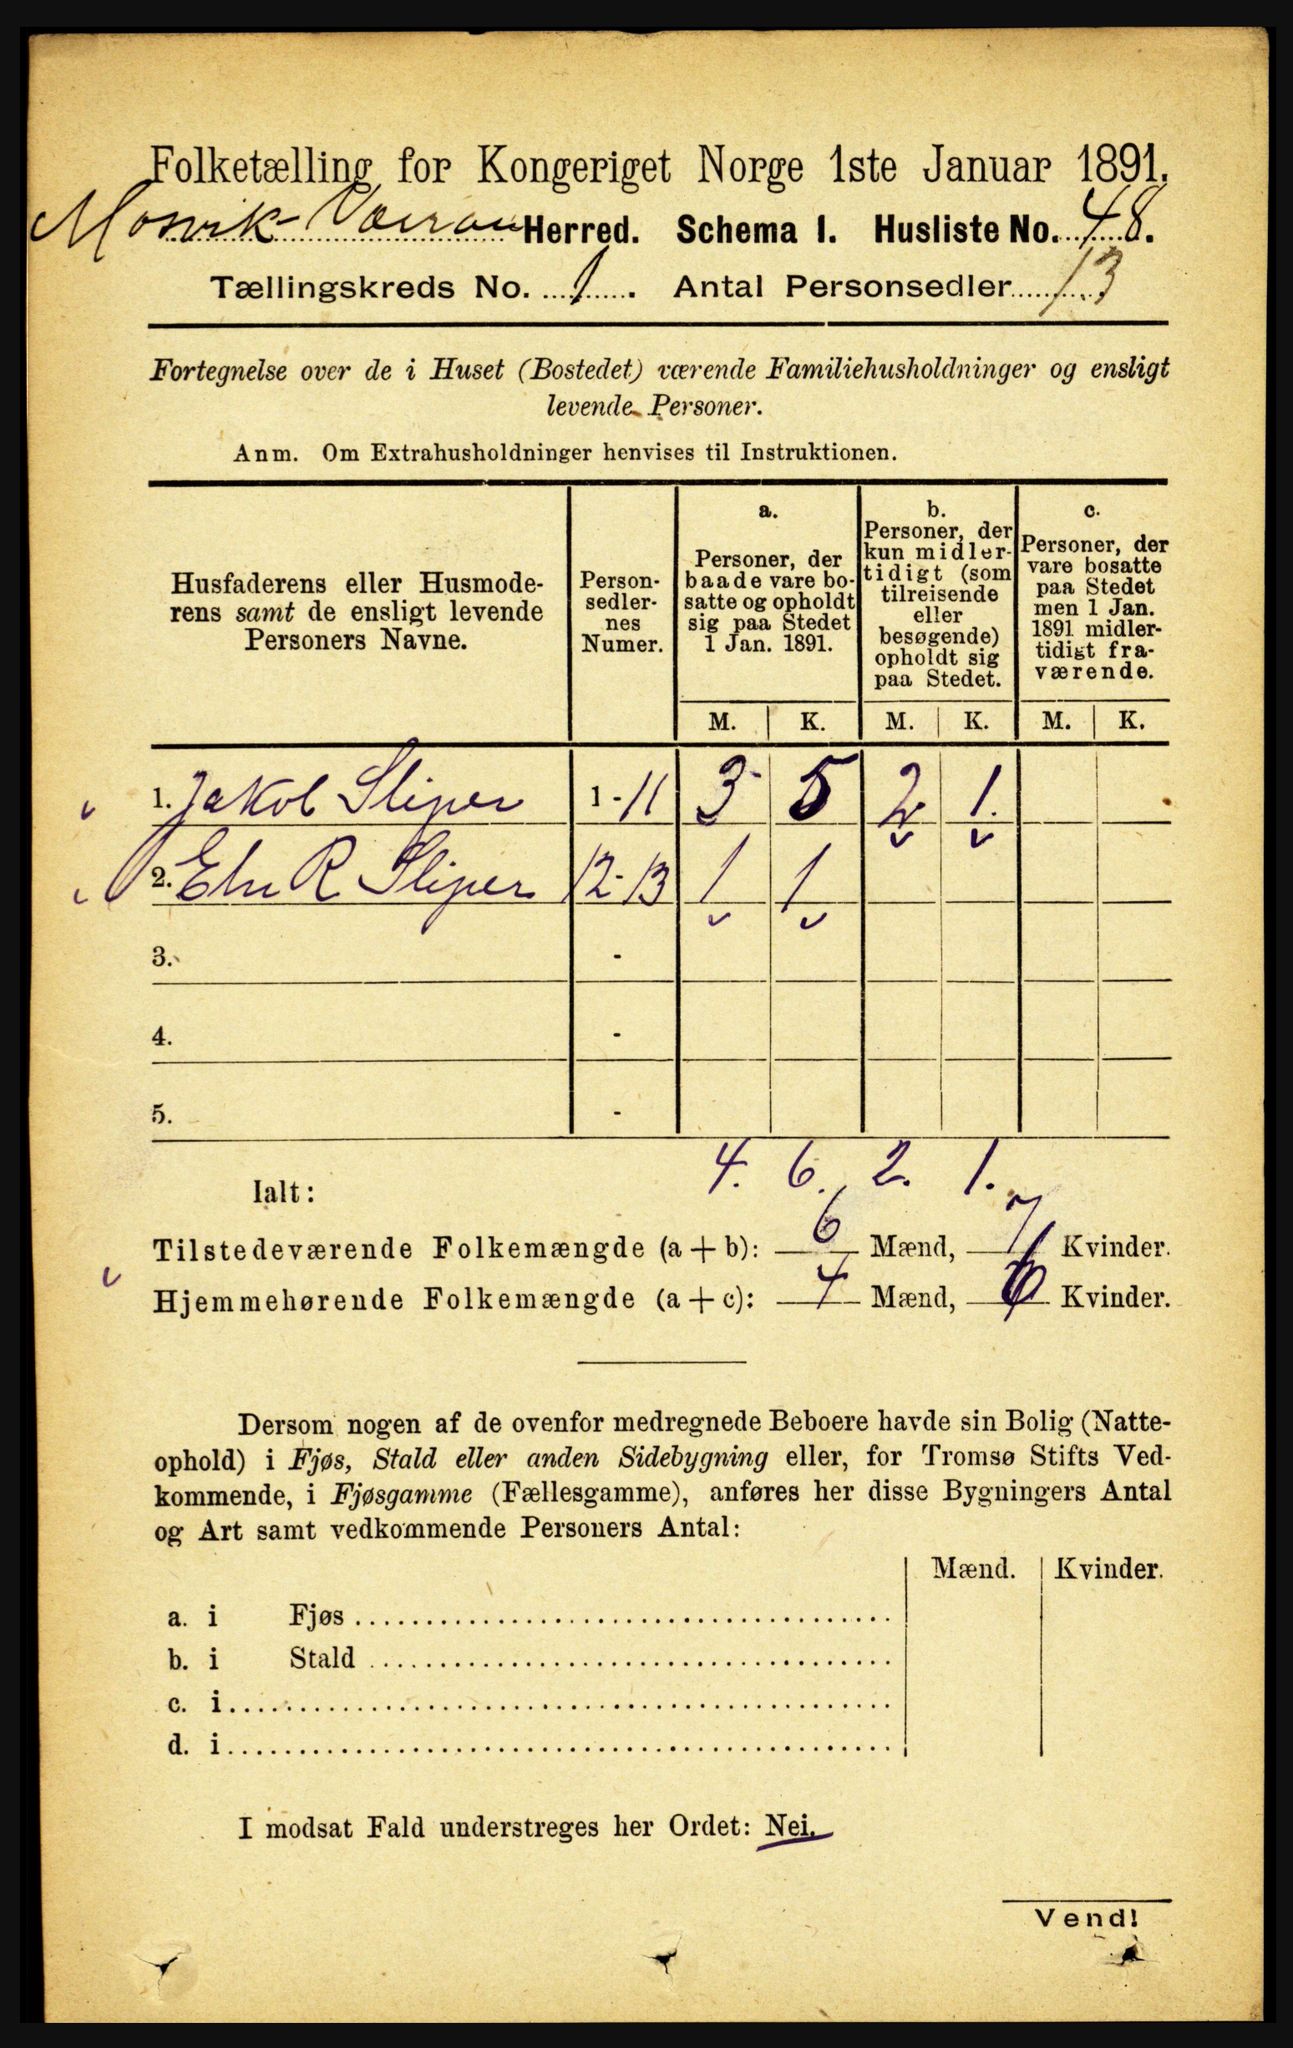 Folketælling for Kongeriget Norge 1ste Januar 1891.
Mosvik Værran Herred. Schema I. Husliste No. 48.
Tællingskreds No. 1. Antal Personsedler 13
Fortegnelse over de i Huset (Bostedet) værende Familiehusholdninger og ensligt
levende Personer.
Anm. Om Extrahusholdninger henvises til Instruktionen.
Husfaderens eller Husmode-
rens samt de ensligt levende
Personers Navne.
Person-
sedler-
nes
Numer.
a.
Personer, der
baade vare bo-
satte og opholdt
sig paa Stedet
1 Jan. 1891.
b.
Personer, der
kun midler-
tidigt (som
tilreisende
eller
besøgende)
opholdt sig
paa Stedet.
c.
Personer, der
vare bosatte
paa Stedet
men 1 Jan.
1891 midler-
tidigt fra-
værende.
M. K. M. K. M. K.
1. Jakob Sliper 1-11 3 5 2 1.
2. R Sliper 12-13 1 1
3. -
4. -
5. -
4. 6. 2. 1.
Ialt:
Tilstedeværende Folkemængde (a + b): 6 Mænd, 7 Kvinder.
Hjemmehørende Folkemængde (a + c): 4 Mænd, 6 Kvinder.
Dersom nogen af de ovenfor medregnede Beboere havde sin Bolig (Natte-
ophold) i Fjøs, Stald eller anden Sidebygning eller, for Tromsø Stifts Ved-
kommende, i Fjøsgamme (Fællesgamme), anføres her disse Bygningers Antal
og Art samt vedkommende Personers Antal:
Mænd. Kvinder.
a. i Fjøs
b. i Stald
c. i
d. i
I modsat Fald understreges her Ordet: Nei.
Vend!